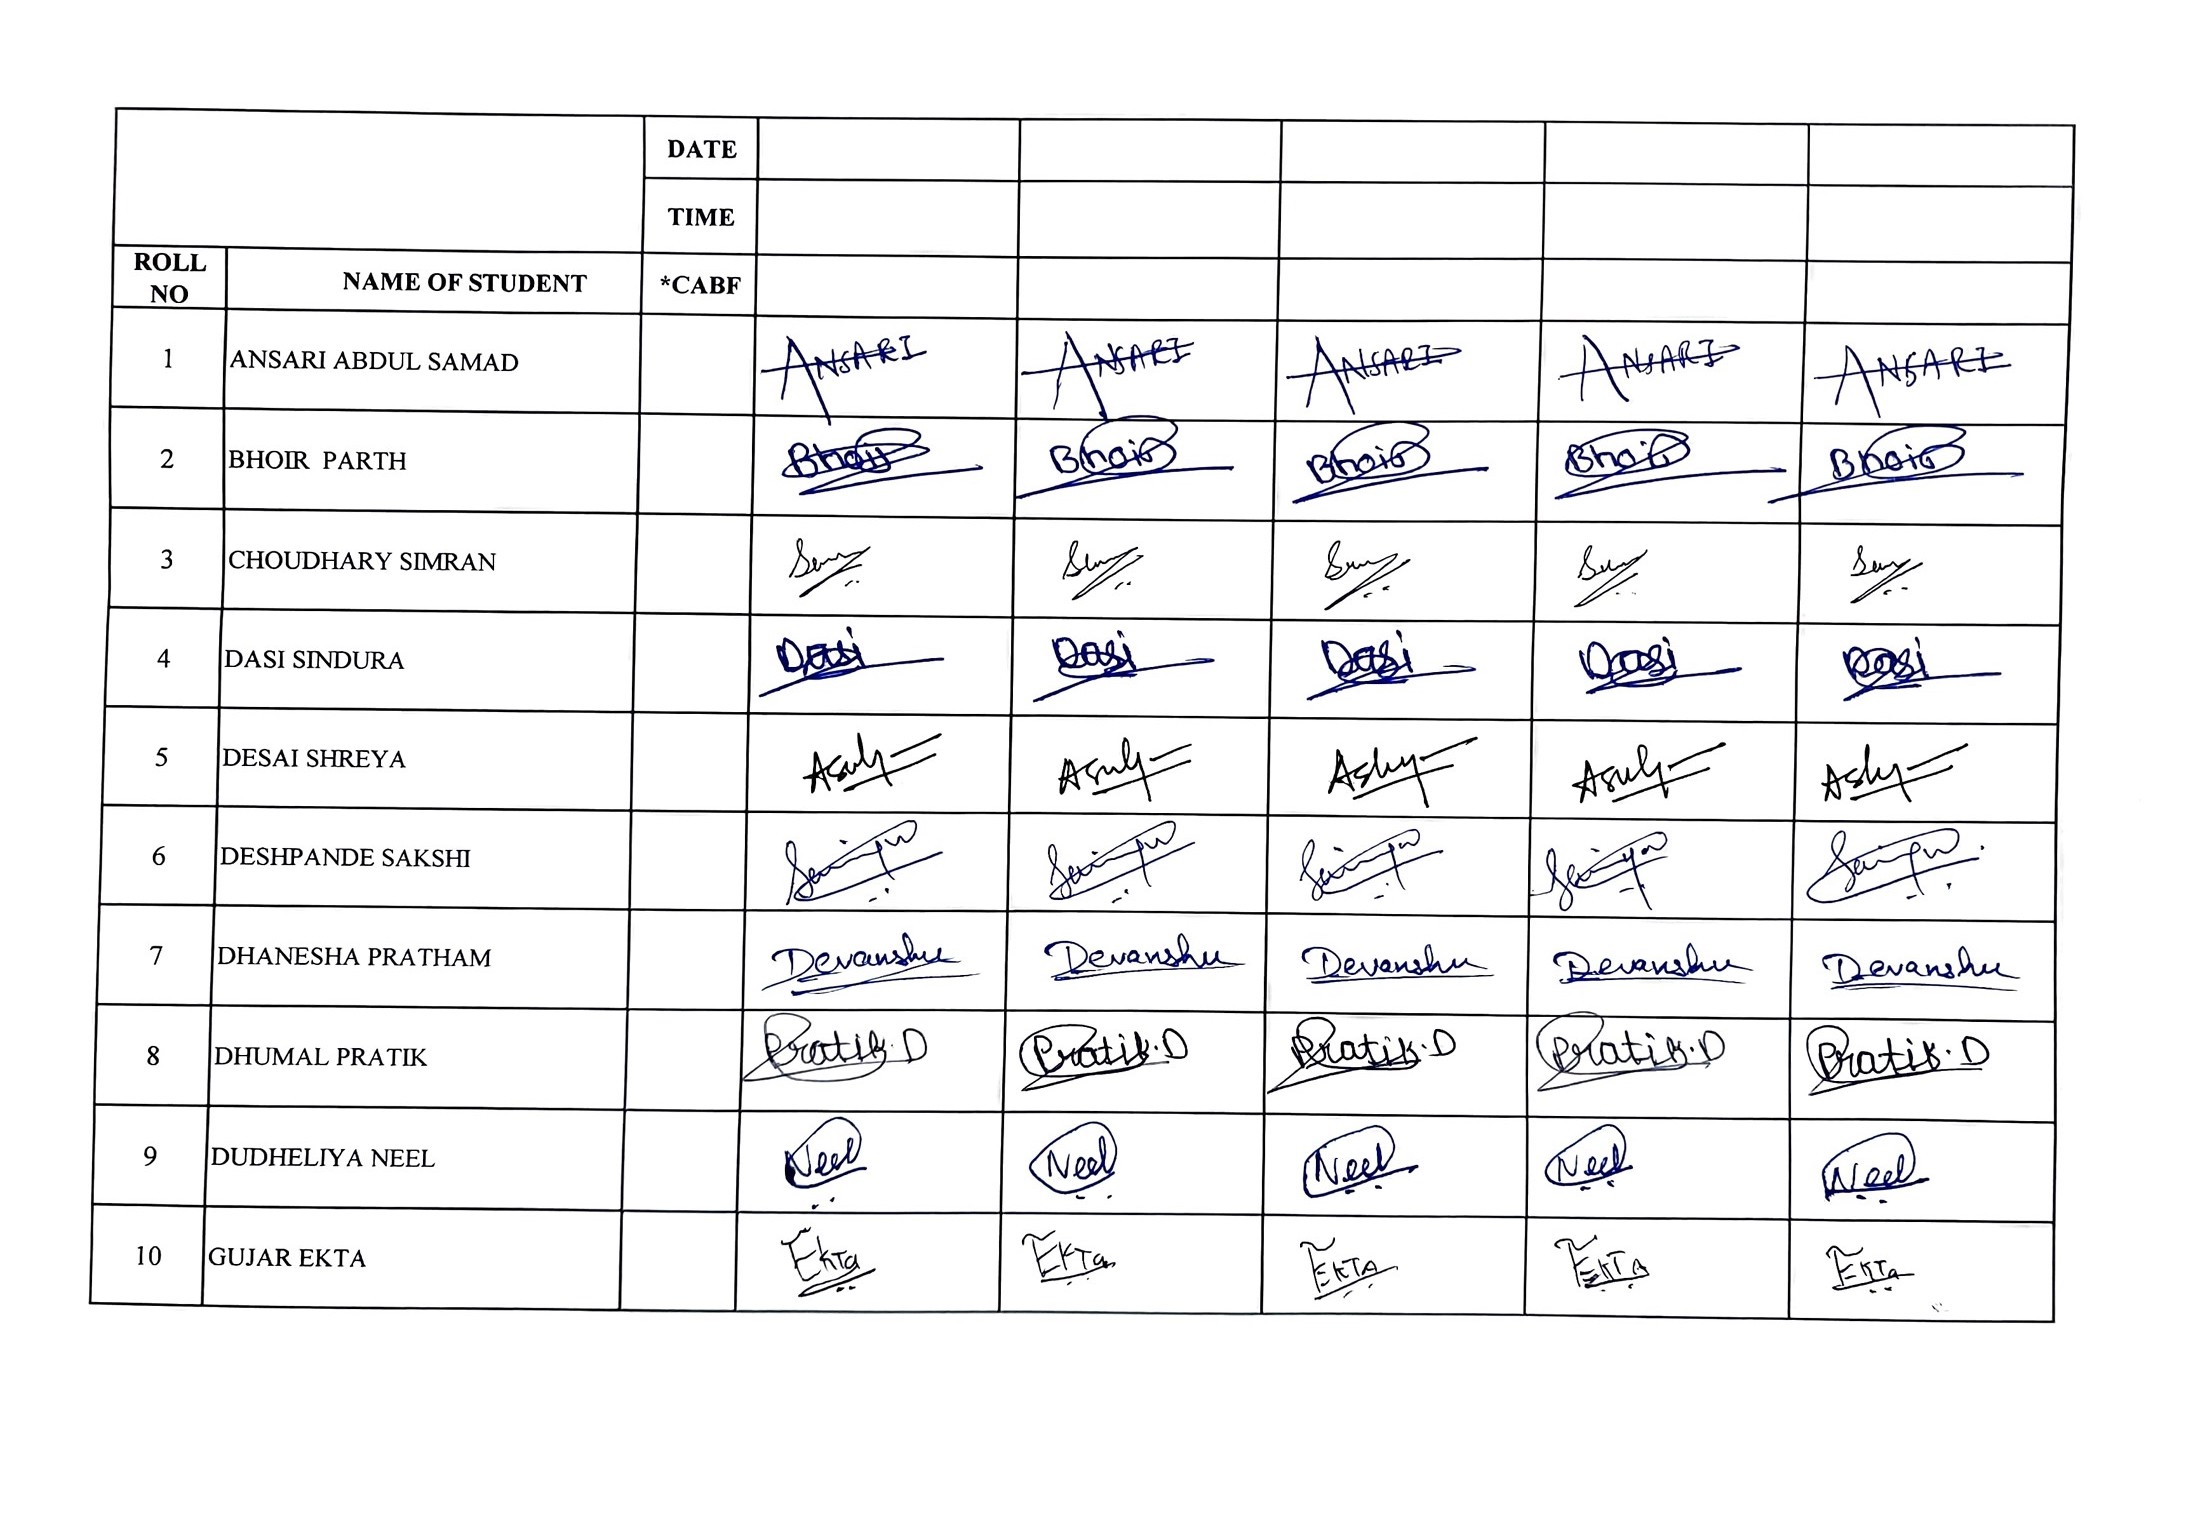 DATE
TIME
ROLL NO NAME OF STUDENT *CABF
1 ANSARI ABDUL SAMAD ANSARI ANSARI ANSARI ANSARI ANSARI
2 BHOIR PARTH Bhoir Bhoir Bhoir Bhoir Bhoir
3 CHOUDHARY SIMRAN
4 DASI SINDURA Dasi Dasi Dasi Dasi Dasi
5 DESAI SHREYA
6 DESHPANDE SAKSHI
7 DHANESHA PRATHAM Devanshu Devanshu Devanshu Devanshu Devanshu
8 DHUMAL PRATIK Pratik.D Pratik.D Pratik.D Pratik.D Pratik.D
9 DUDHELIYA NEEL Neel Neel Neel Neel Neel
10 GUJAR EKTA EKTa EKTa EKTA EKTA EKTa